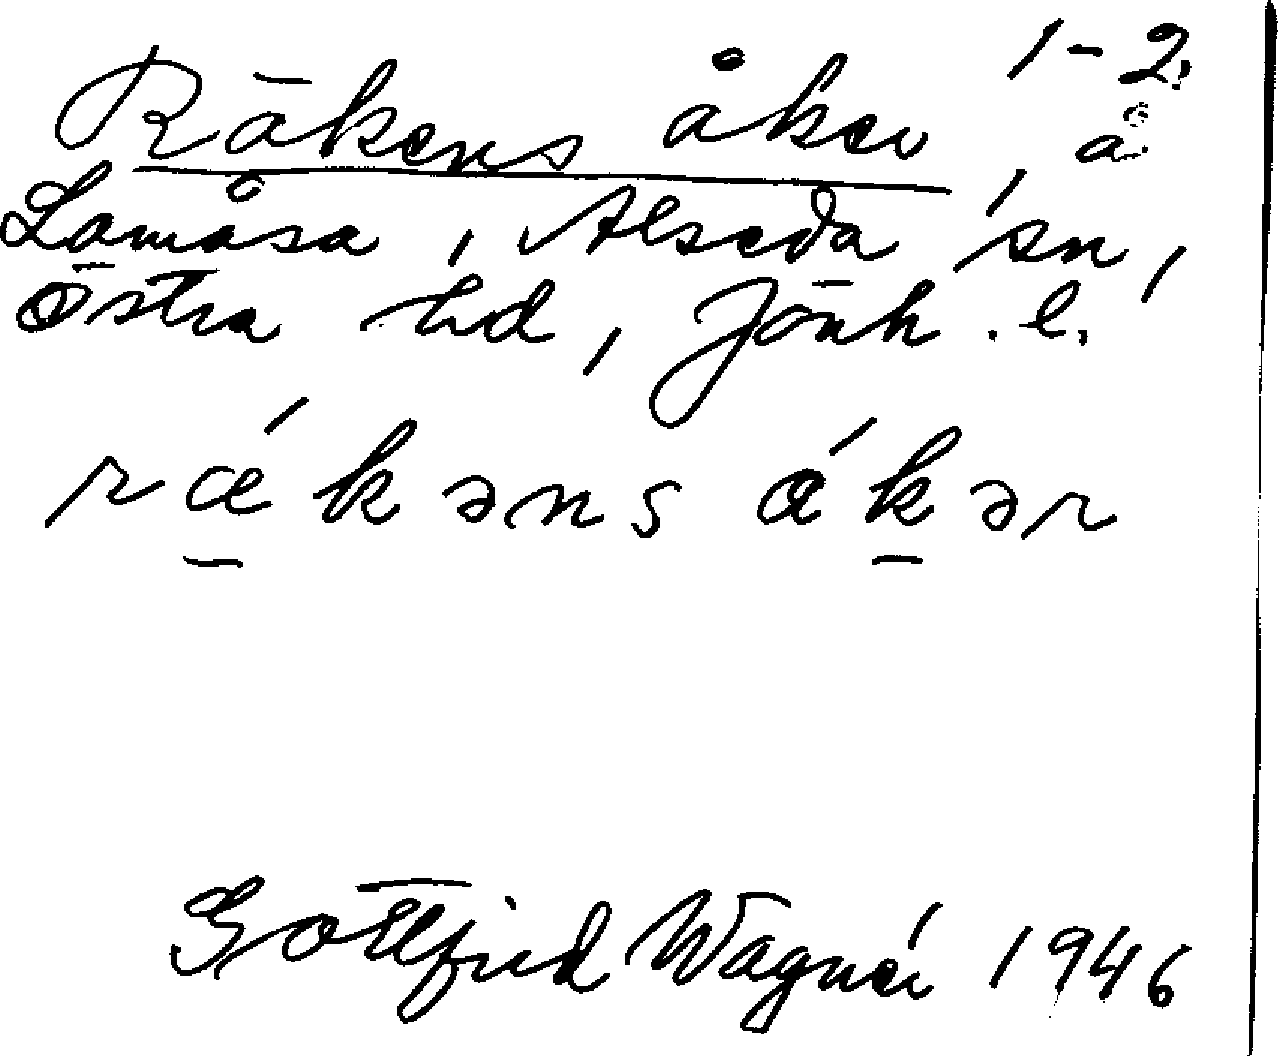 1-2.
Räkens åker, å
Lamåsa, Alseda sn,
Östra hd, Jönk. l.
rǽkəns åkər
Gottfrid Wagnér 1946